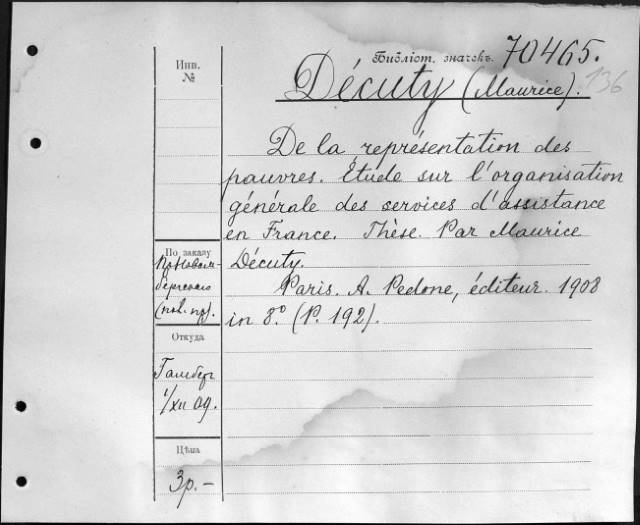 Библіот. значекъ. 70465.
136
Инв.
№
Décuty (Maurice).
De la représentation des
pauvres. Étude sur l'organisation
générale des services d'assistance
en France. Thèse. Par Maurice
Décuty.
Paris. A. Pedone, éditeur. 1908
in 8.º (P. 192).
По заказу
Откуда
1/XII 09.
Цѣна
3р.-